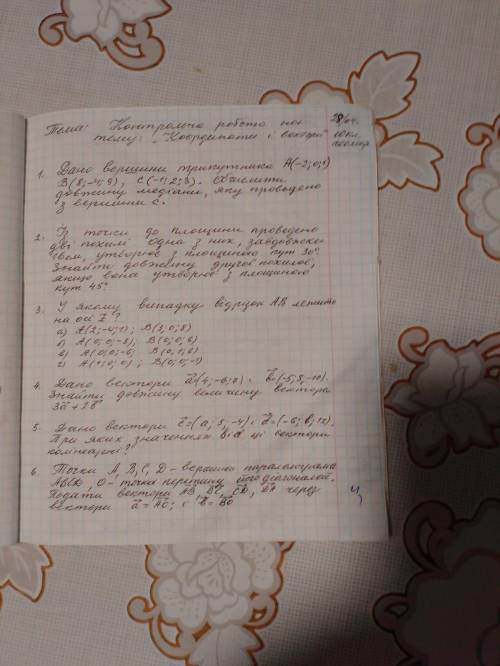 Тема: Контрольна робота на
тему: "Координати і вектори"
10кл.
геометрія
1. Дано вершини трикутника A(-2;0;1)
B(8;-4;9), C(-1;2;3). Обчислити
довжину медіани, яку проведено
з вершини C.
2. Із точки до площини проведено
дві похилі. Одна з них, завдовжки
утворює з площиною кут 30°.
Знайти довжину другої похилої,
якщо вона утворює з площиною
кут 45°
3. У якому випадку відрізок AB лежить
на осі Z?
а) A(2;-4;1); B(3;0;8)
б) A(0;0;-3); B(0;0;6)
в)
г) A(1;0;0); B(0;0;-1)
4. Дано вектори
Знайти довжину вектора
3a+2b
5. Дано вектори c=(a;5;-4) і d=(-6;b;12).
При яких значеннях a ці вектори
колінеарні?
6. Точки A, B, C, D - вершини паралелограма
ABCD, O - точка перетину його діагоналей.
Подати вектори AB, BC, CD, DA через
вектори a=AO; і b=BO